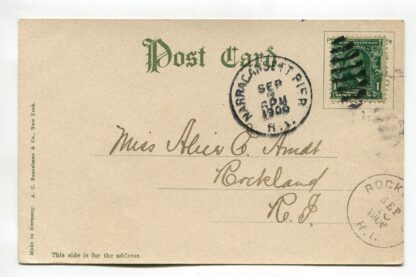 Post Card
NARRAGANSETT PIER
SEP
6 PM
R.I.
Miss Alice C. Arndt
Rockland
R.I.
ROCK
SEP
R.I.
Made in Germany. A. C. Bosselman & Co., New York.
This side is for the address.